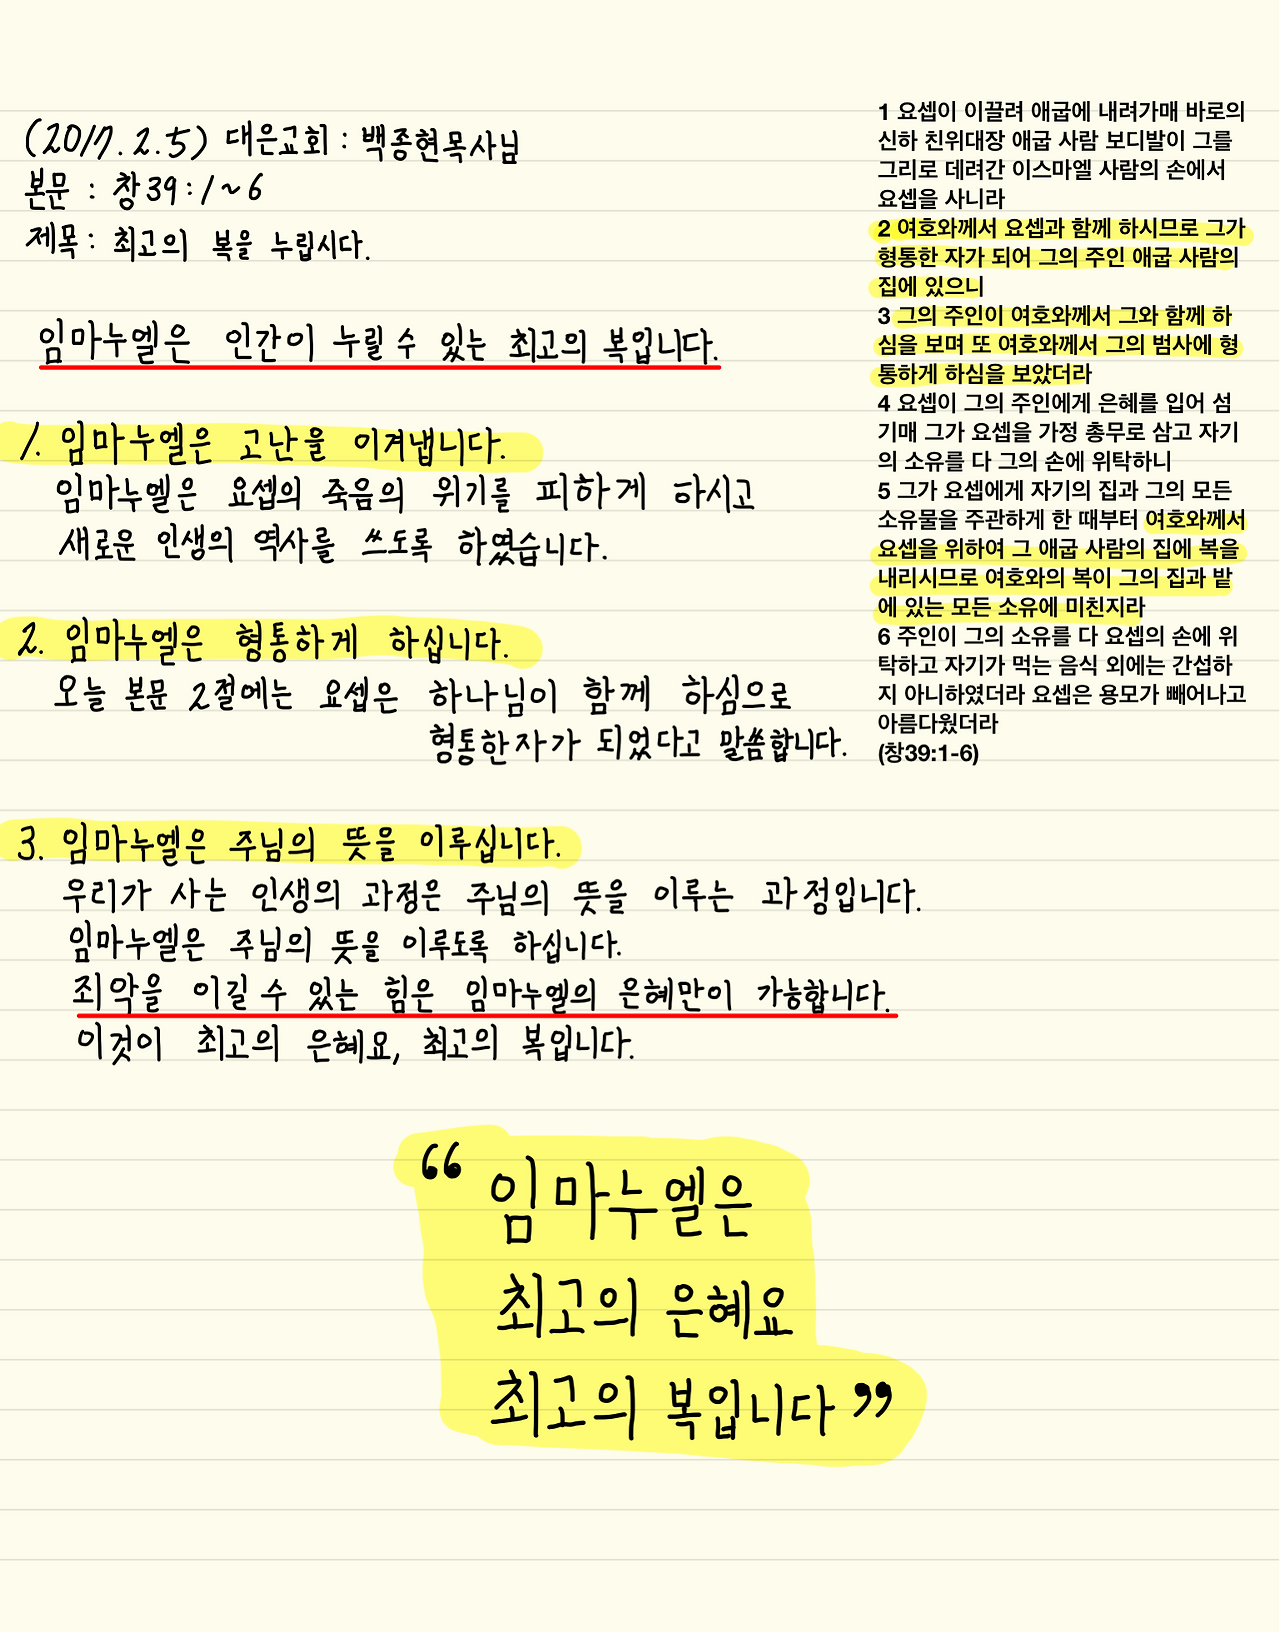 (2017.2.5) 대은교회 : 백종현목사님
본문 : 창39:1~6
제목 : 최고의 복을 누립시다.
임마누엘은 인간이 누릴 수 있는 최고의 복입니다.
1. 임마누엘은 고난을 이겨냅니다.
임마누엘은 요셉의 죽음의 위기를 피하게 하시고
새로운 인생의 역사를 쓰도록 하였습니다.
2. 임마누엘은 형통하게 하십니다.
오늘 본문 2절에는 요셉은 하나님이 함께 하심으로
형통한자가 되었다고 말씀합니다.
3. 임마누엘은 주님의 뜻을 이루십니다.
우리가 사는 인생의 과정은 주님의 뜻을 이루는 과정입니다.
임마누엘은 주님의 뜻을 이루도록 하십니다.
죄악을 이길 수 있는 힘은 임마누엘의 은혜만이 가능합니다.
이것이 최고의 은혜요, 최고의 복입니다.
“ 임마누엘은
최고의 은혜요
최고의 복입니다 ”
1 요셉이 이끌려 애굽에 내려가매 바로의
신하 친위대장 애굽 사람 보디발이 그를
그리로 데려간 이스마엘 사람의 손에서
요셉을 사니라
2 여호와께서 요셉과 함께 하시므로 그가
형통한 자가 되어 그의 주인 애굽 사람의
집에 있으니
3 그의 주인이 여호와께서 그와 함께 하
심을 보며 또 여호와께서 그의 범사에 형
통하게 하심을 보았더라
4 요셉이 그의 주인에게 은혜를 입어 섬
기매 그가 요셉을 가정 총무로 삼고 자기
의 소유를 다 그의 손에 위탁하니
5 그가 요셉에게 자기의 집과 그의 모든
소유물을 주관하게 한 때부터 여호와께서
요셉을 위하여 그 애굽 사람의 집에 복을
내리시므로 여호와의 복이 그의 집과 밭
에 있는 모든 소유에 미친지라
6 주인이 그의 소유를 다 요셉의 손에 위
탁하고 자기가 먹는 음식 외에는 간섭하
지 아니하였더라 요셉은 용모가 빼어나고
아름다웠더라
(창39:1-6)